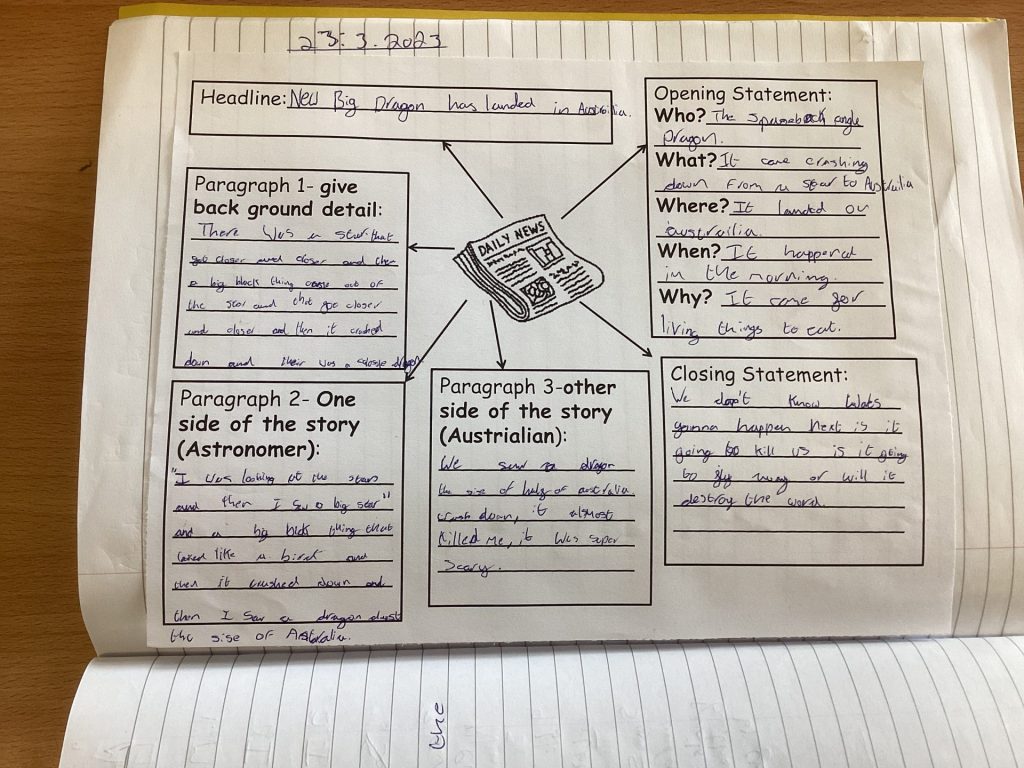 23.3.2023
Headline: New Big Dragon has landed in
Opening Statement:
Who? The
Dragon.
What? It came crashing
down from a star to Australia
Where? It landed on
australia.
When? It happend
in the morning.
Why? It came for
living things to eat.
DAILY NEWS
Paragraph 1- give
back ground detail:
There was a star that
got closer and closer and then
a big black thing came out of
the star and that got closer
and closer and then it crashed
down and their was a dragon
Paragraph 2- One
side of the story
(Astronomer):
"I was looking at the stars
and then I saw a big star"
and a big black thing that
looked like a bird and
then it crushed down and
then I saw a dragon
the sise of Australia.
Paragraph 3-other
side of the story
(Austrialian):
We saw a dragon
the size of half of australia
crash down, it almost
killed me, it was super
scary.
Closing Statement:
We don't know wats
gonna happen Next is it
going to kill us is it going
to fly away or will it
destroy the
the